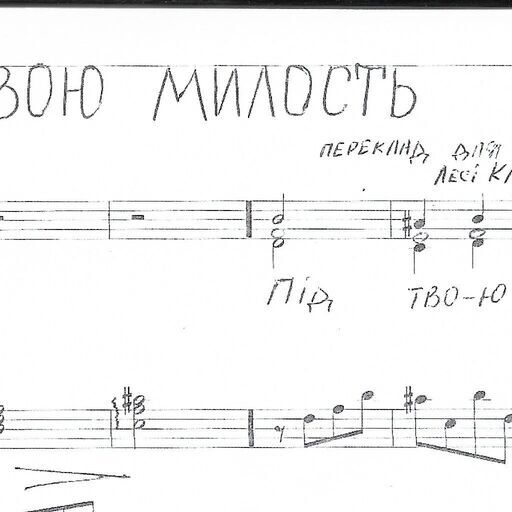 ВОЮ МИЛОСТЬ
ПЕРЕКЛАД ДЛЯ
ЛЕСІ
ПІД ТВО-Ю